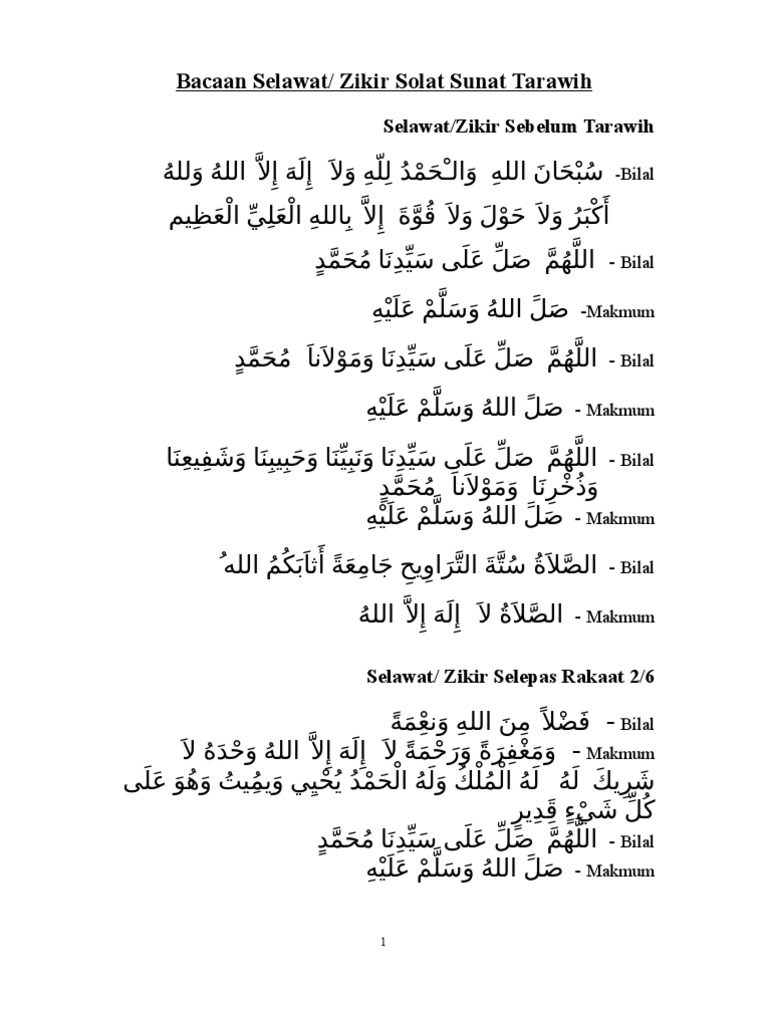 Bacaan Selawat/ Zikir Solat Sunat Tarawih
Selawat/Zikir Sebelum Tarawih
Bilal- سُبْحَانَ اللهِ وَالْحَمْدُ لِلّهِ وَلاَ إِلَهَ إِلاَّ اللهُ وَللهُ
أَكْبَرُ وَلاَ حَوْلَ وَلاَ قُوَّةَ إِلاَّ بِاللهِ الْعَلِيِّ الْعَظِيم
Bilal - اللَّهُمَّ صَلِّ عَلَى سَيِّدِنَا مُحَمَّدٍ
Makmum- صَلَّ اللهُ وَسَلَّمْ عَلَيْهِ
Bilal - اللَّهُمَّ صَلِّ عَلَى سَيِّدِنَا وَمَوْلاَناَ مُحَمَّدٍ
Makmum - صَلَّ اللهُ وَسَلَّمْ عَلَيْهِ
Bilal - اللَّهُمَّ صَلِّ عَلَى سَيِّدِنَا وَنَبِيِّنَا وَحَبِيبِنَا وَشَفِيعِنَا
وَذُخْرِنَا وَمَوْلاَناَ مُحَمَّدٍ
Makmum - صَلَّ اللهُ وَسَلَّمْ عَلَيْهِ
Bilal - الصَّلاَةُ سُنَّةَ التَّرَاوِيحِ جَامِعَةً أَثاَبَكُمُ اللهُ
Makmum - الصَّلاَةُ لاَ إِلَهَ إِلاَّ اللهُ
Selawat/ Zikir Selepas Rakaat 2/6
Bilal - فَضْلاً مِنَ اللهِ وَنِعْمَةً
Makmum - وَمَغْفِرَةً وَرَحْمَةً لاَ إِلَهَ إِلاَّ اللهُ وَحْدَهُ لاَ
شَرِيكَ لَهُ لَهُ الْمُلْكُ وَلَهُ الْحَمْدُ يُحْيِي وَيمُِيتُ وَهُوَ عَلَى
كُلِّ شَيْءٍ قَدِيرٍ
Bilal - اللَّهُمَّ صَلِّ عَلَى سَيِّدِنَا مُحَمَّدٍ
Makmum - صَلَّ اللهُ وَسَلَّمْ عَلَيْهِ
1